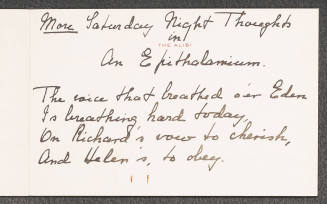 More Saturday Night Thoughts
in
THE ALIBI
An Epitholamium.
The voice that breathed o'er Eden
Is breathing hard today,
On Richard's vow to cherish,
And Helen's, to obey.